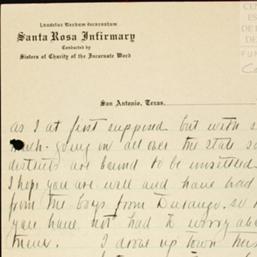 Laudetur Verbum Incarnatum
Santa Rosa Infirmary
Conducted by
Sisters of Charity of the Incarnate Word
San Antonio, Texas.
as I at first supposed but with s
much going on all over the state so
districts are bound to be unsettled
I hope you are well and have had
from the boys from Durango, so
you have not had to worry abou
them. I drove up town this